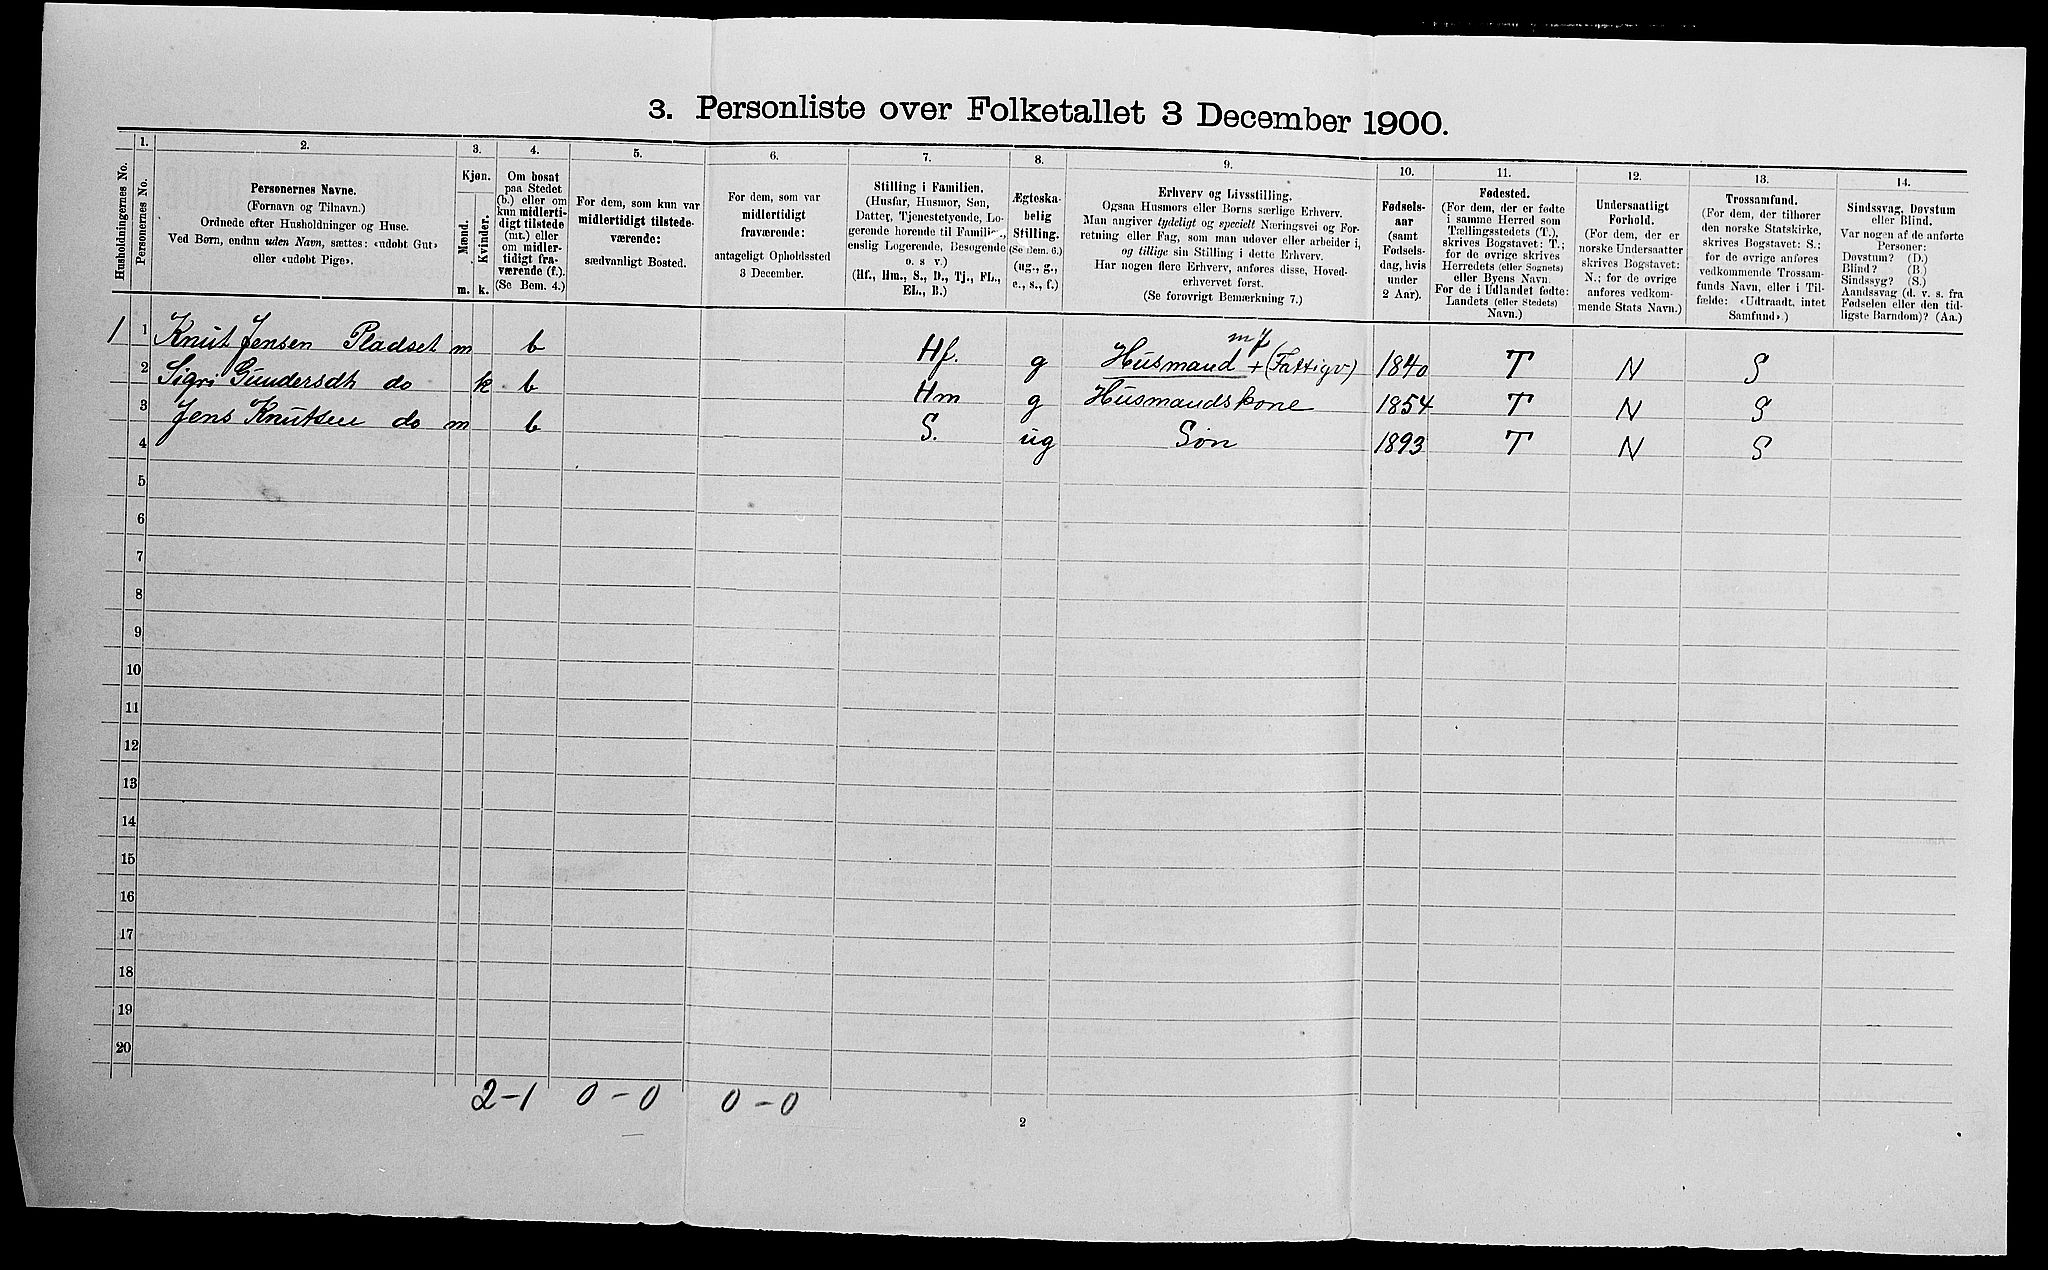 3. Personliste over Folketallet 3 December 1900.
Husholdningernes No.
1.
Personernes No.
2.
Personernes Navne.
(Fornavn og Tilnavn.)
Ordnede efter Husholdninger og Huse.
Ved Børn, endnu uden Navn, sættes: «udøbt Gut»
eller «udøbt Pige».
3.
Kjøn.
Mænd.
Kvinder.
m.
k.
4.
Om bosat
paa Stedet
(b.) eller om
kun midlerti-
digt tilstede
(mt.) eller
om midler-
tidigt fra-
værende (f.).
(Se Bem. 4.)
5.
For dem, som kun var
midlertidigt tilstede-
værende:
sædvanligt Bosted.
6.
For dem, som var
midlertidigt
fraværende:
antageligt Opholdssted
3 December.
7.
Stilling i Familien.
(Husfar, Husmor, Søn,
Datter, Tjenestetyende, Lo-
gerende hørende til Familien,
enslig Logerende, Besøgende
o. s v.)
(Hf., Hm., S., D., Tj., FL.,
EL., B.)
8.
Ægteska-
belig
Stilling.
(Se Bem. 6.)
(ug., g.,
e., s., f.)
9.
Erhverv og Livsstilling.
Ogsaa Husmors eller Børns særlige Erhverv.
Man angiver tydeligt og specielt Næringsvei og For-
retning eller Fag, som man udøver eller arbeider i,
og tillige sin Stilling i dette Erhverv.
Har nogen flere Erhverv, anføres disse, Hoved-
erhvervet først.
(Se forøvrigt Bemærkning 7.)
10.
Fødsels-
aar
(samt
Fødsels-
dag, hvis
under
2 Aar).
11.
Fødested.
(For dem, der er fødte
i samme Herred som
Tællingsstedets (T.),
skrives Bogstavet: T.;
for de øvrige skrives
Herredets (eller Sognets)
eller Byens Navn.
For de i Udlandet fødte:
Landets (eller Stedets)
Navn.)
12.
Undersaatligt
Forhold.
(For dem, der er
norske Undersaatter
skrives Bogstavet:
N.; for de øvrige
anføres vedkom-
mende Stats Navn.)
13.
Trossamfund.
(For dem, der tilhører
den norske Statskirke,
skrives Bogstavet: S.;
for de øvrige anføres
vedkommende Trossam-
funds Navn, eller i Til-
fælde: «Udtraadt, intet
Samfund».)
14.
Sindssvag, Døvstum
eller Blind.
Var nogen af de anførte
Personer:
Døvstum? (D.)
Blind? (B.)
Sindssyg? (S.)
Aandssvag (d. v. s. fra
Fødselen eller den tid-
ligste Barndom)? (Aa.)
1 1 Knut Jensen Pladset m b Hf. g Husmand mf + (Fattigv) 1840 T N S
2 Sigri Gundersdt do k b Hm g Husmandskone 1854 T N S
3 Jens Knutsen do m b S. ug Søn 1893 T N S
4
5
6
7
8
9
10
11
12
13
14
15
16
17
18
19
20
2-1 0-0 0-0
2